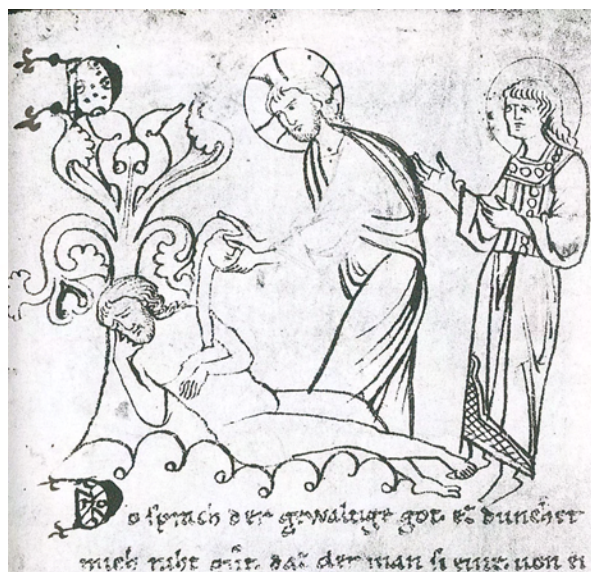 Do sprach der gewaltige got. ez dunchet
mich niht gůt. daz der man si eine. uon ei